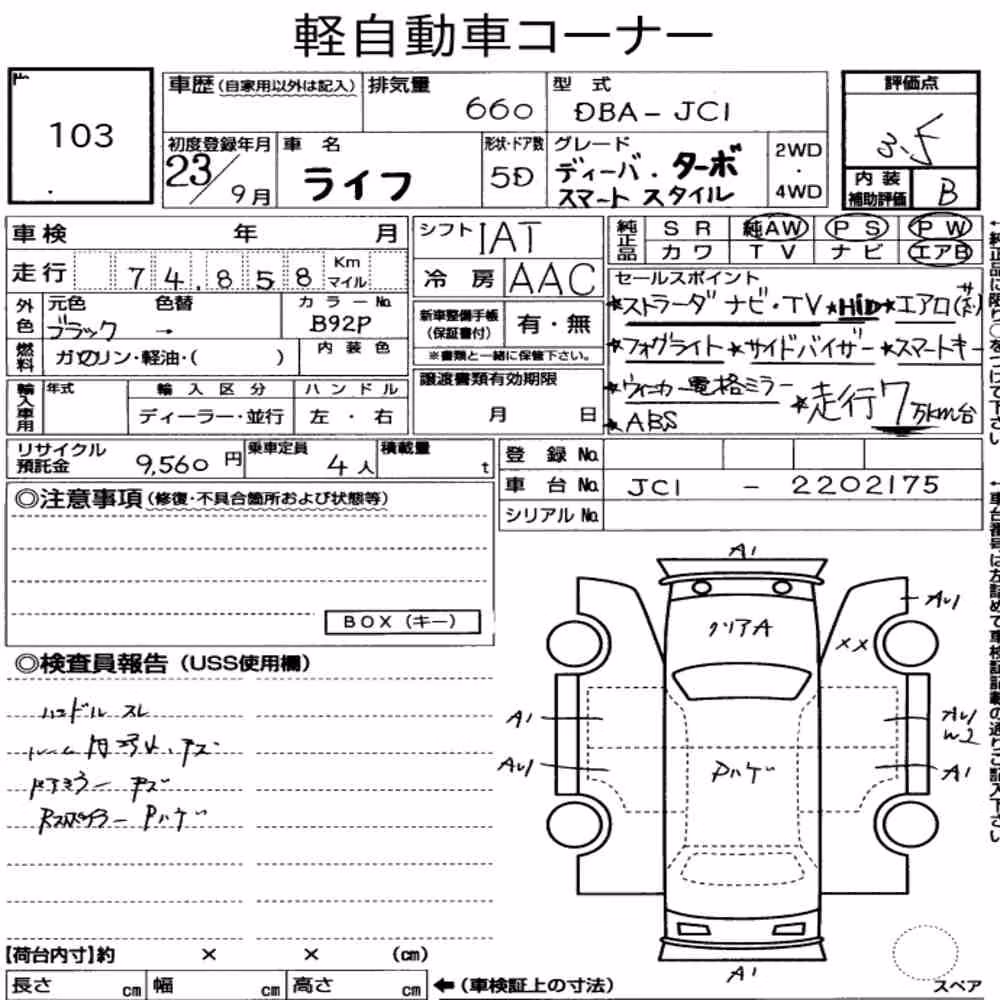 軽自動車コーナー
No
103
車歴(自家用以外は記入)
排気量
660
型式
DBA-JC1
評価点
3.5
初度登録年月
23/9月
車名
ライフ
形状・ドア数
5D
グレード
ディーバ・ターボ
スマート スタイル
2WD
・
4WD
内装
補助評価
B
車検 年 月
シフト IAT
純正品
SR 純AW PS PW
カワ TV ナビ エアB
走行 74,858 Km マイル
冷房 AAC
セールスポイント
★ストラーダ ナビ・TV ★HiD ★エアロ
★フォグライト ★サイドバイザー ★スマートキー
★ウィンカー電格ミラー ★走行7万km台
★ABS
外色
元色 色替
ブラック →
カラーNo.
B92P
新車整備手帳
(保証書付)
有・無
※書類と一緒に保管下さい。
燃料
ガソリン・軽油・( )
内装色
譲渡書類有効期限
月 日
輸入車用
年式
輸入区分
ハンドル
ディーラー・並行
左・右
リサイクル
預託金
9,560円
乗車定員
4人
積載量
t
登録No.
車台No. JC1 - 2202175
シリアルNo.
◎注意事項(修復・不具合箇所および状態等)
BOX(キー)
◎検査員報告(USS使用欄)
ハンドル スレ
ドアミラー キズ
Pハゲ
A1
クリアA
××
A1
Pハゲ
W2
A1
A1
【荷台内寸】約 × × (cm)
長さ cm 幅 cm 高さ cm
←(車検証上の寸法)
スペア